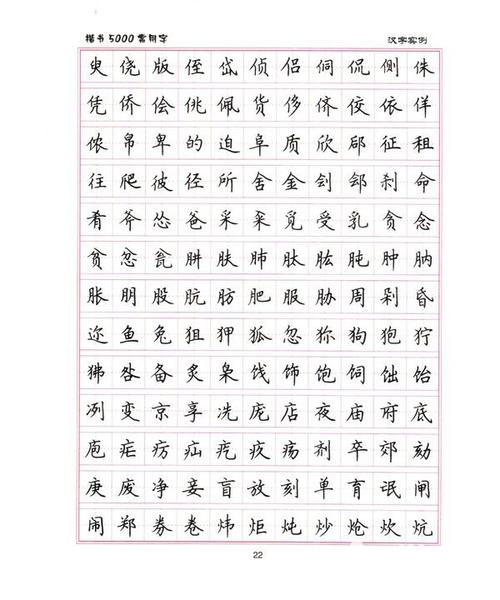 楷书5000常用字 汉字实例
臾 侥 版 侄 岱 侦 侣 侗 侃 侧 侏
凭 侨 侩 佻 佩 货 侈 侪 佼 依 佯
侬 帛 卑 的 迫 阜 质 欣 郈 征 租
往 爬 彼 径 所 舍 金 刽 郐 刹 命
肴 斧 怂 爸 采 籴 觅 受 乳 贪 念
贫 忿 瓮 肼 肤 肺 肽 肱 肫 肿 肭
胀 朋 股 肮 肪 肥 服 胁 周 剁 昏
迩 鱼 兔 狙 狎 狐 忽 狝 狗 狍 狞
狒 咎 备 炙 枭 饯 饰 饱 饲 饳 饴
冽 变 京 享 冼 庞 店 夜 庙 府 底
庖 疟 疠 疝 疙 疚 疡 剂 卒 郊 劾
庚 废 净 妾 盲 放 刻 单 育 氓 闸
闹 郑 券 卷 炜 炬 炖 炒 炝 炊 炕
22